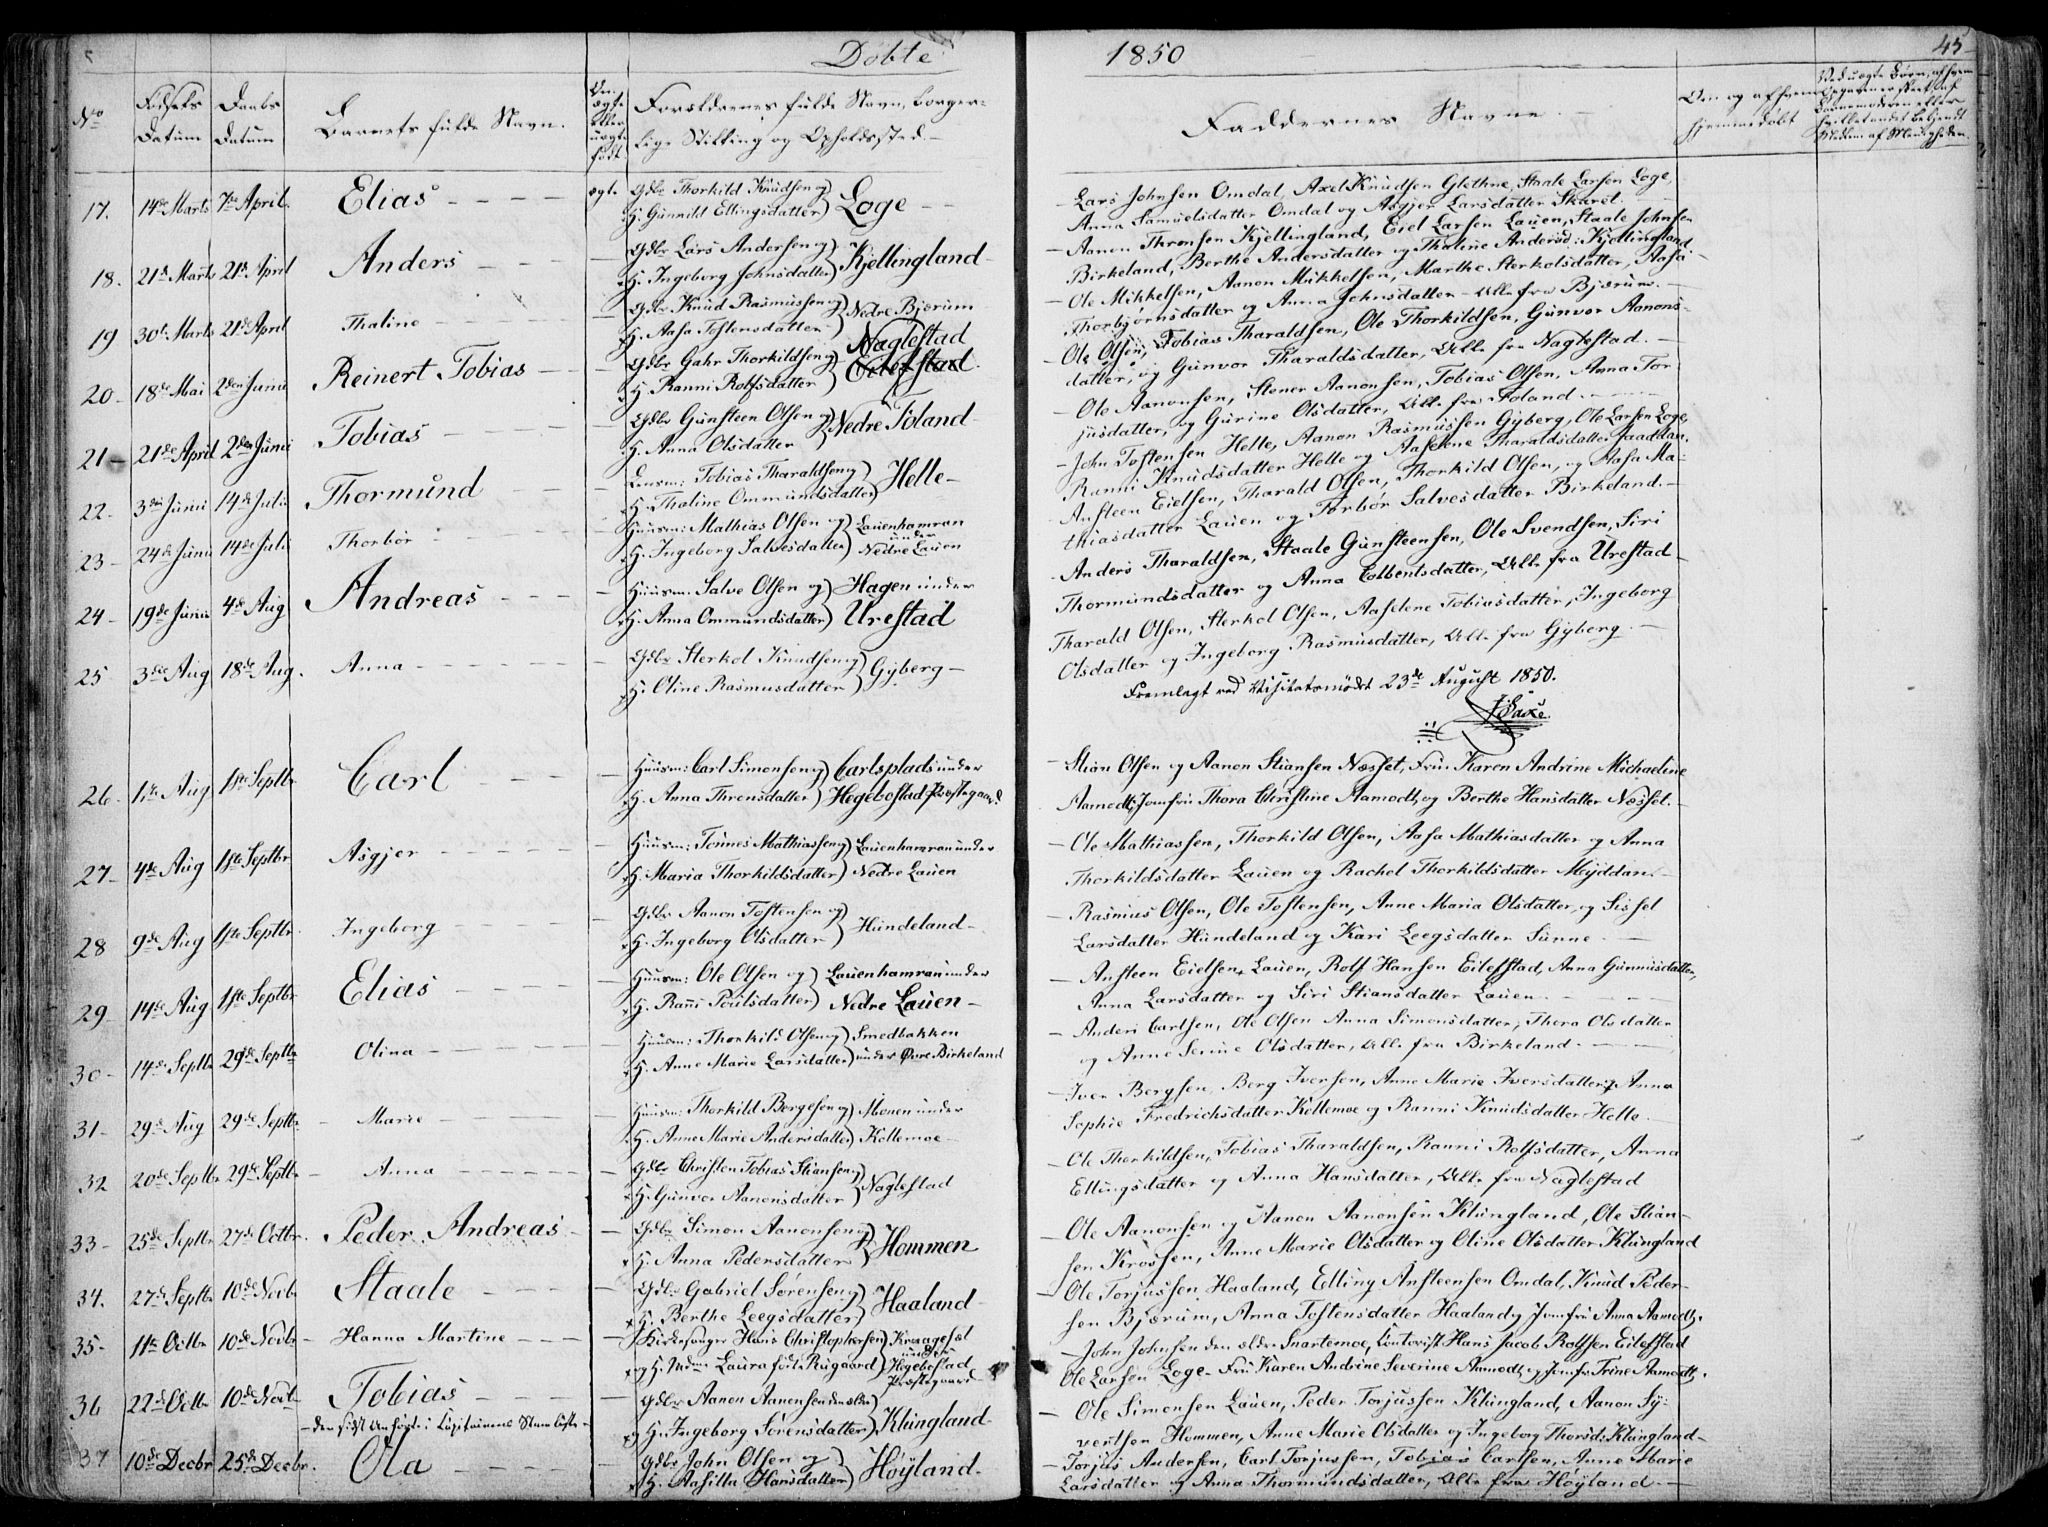 Døbte
1850
45
No
Fødsels Datum
Daabs Datum
Barnets fulde Navn.
Om ægte eller uægte født
Forældrenes fulde Navn, borger-
lige Stilling og Opholdssted.
Faddernes Navne.
Om og af hvem
hjemmedøbt
17. 14de Marts 7de April. Elias ægte Gdbr Thorkild Knudsen og
H. Gunnild Ellingsdatter) Loge
Lars Johnsen Omdal, Axel Knudsen Glethne, Staale Larsen Loge,
Anna Samuelsdatter Omdal og Asgjer Larsdatter Skaret.
18. 21de Marts 21de April Anders Gdbr Lars Andersen og
H. Ingeborg Johnsdatter) Kjellingland
Aanon Thronsen Kjellingland, Eiel Larsen Lauen, Staale Johnsen
Birkeland, Berthe Andersdatter og Thaline Andersd: Kjellingland.
19 30te Marts 21de April Thaline Gdbr Knud Rasmussen og
H. Aasa Tostensdatter) Nedre Bjærum
Ole Mikkelsen, Aanon Mikkelsen, Marthe Sterkolsdatter, Aasa
Thorbjørnsdatter og Anna Johnsdatter Alle fra Bjærum.
20 18de Mai 2den Juni Reinert Tobias Gdbr Gahr Thorkildsen og
H. Ranni Rolfsdatter) Naglestad
Eilefstad
Ole Olsen, Tobias Tharaldsen, Ole Thorkildsen, Gunvor Aanons-
datter, og Gunvor Tharaldsdatter, Alle fra Naglestad.
21 21de April 2den Juni Tobias Gdbr Gunsteen Olsen og
H. Anna Olsdatter) Nedre Foland
Ole Aanonsen, Stener Aanonsen, Tobias Olsen, Anna Tor-
jusdatter, og Gurine Olsdatter, Alle fra Foland.
22. 3die Juni 14de Juli Thormund Lensm: Tobias Tharaldsen og
H. Thaline Ommundsdatter) Helle
John Tostensen Helle, Aanon Rasmussen Gyberg, Ole Larsen Loge,
Ranni Knudsdatter Helle og Aaselene Tharaldsdatter
23 24de Juni 14de Juli Thorbør Huusm: Mathias Olsen og
H. Ingeborg Salvesdatter) Lauenhamran
under
Nedre Lauen
Ansteen Eielsen, Tharald Olsen, Thorkild Olsen, og Aasa Ma-
thiasdatter Lauen og Torbør Salvesdatter Birkeland.
24 19de Juni 4de Aug Andreas Huusm: Salve Olsen og
H. Anna Ommundsdatter) Hagen under
Urestad
Anders Tharaldsen, Staale Gunsteensen, Ole Svendsen, Siri
Thormundsdatter og Anna Eolbentsdatter, Alle fra Urestad
25 3die Aug 18de Aug. Anna Gdbr Sterkol Knudsen og
H. Oline Rasmusdatter) Gyberg
Tharald Olsen, Sterkol Olsen, Aaselene Tobiasdatter, Ingeborg
Olsdatter og Ingeborg Rasmusdatter, Alle fra Gyberg.
Fremlagt ved Visitatsmødet 23de August 1850.
26. 1ste Aug 1ste Septbr Carl Huusm: Carl Simonsen og
H. Anna Thronsdatter) Carlsplads under
Hegebostad Præstegaard
Stian Olsen og Aanon Stiansen Næsset, Fru Karen Andrine Michaeline
Aamodt, Jomfru Thora Christine Aamodt, og Berthe Hansdatter Næsset.
27 4de Aug 1ste Septbr Asgjer Huusm: Tønnes Mathiassen og
H. Maria Thorkildsdatter) Lauenhamran under
Nedre Lauen
Ole Mathiassen, Thorkild Olsen, Aasa Mathiasdatter og Anna
Thorkildsdatter Lauen og Rachel Thorkildsdatter Moyddan.
28 9de Aug 1ste Septbr. Ingeborg Gdbr Aanon Tostensen og
H. Ingeborg Olsdatter) Hundeland
Rasmus Olsen, Ole Tostensen, Anne Maria Olsdatter og Sissel
Larsdatter Hundeland og Kari Leegsdatter Sunne.
29 14de Aug 1ste Septbr Elias Huusm: Ole Olsen og
H. Ranni Poulsdatter) Lauenhamran under
Nedre Lauen
Ansteen Eielsen Lauen, Rolf Hansen Eilefstad, Anna Gunnusdatter,
Anna Larsdatter og Siri Stiansdatter Lauen.
30 14de Septbr 29de Septbr Olina Huusm: Thorkild Olsen og
H. Anne Marie Larsdatter) Smedbakken
under Øvre Birkeland
Anders Carlsen, Ole Olsen Anna Simonsdatter, Thora Olsdatter
og Anne Serine Olsdatter, Alle fra Birkeland.
31 29de Aug 29de Septbr. Marie Huusm: Thorkild Bergesen og
H. Anne Marie Andersdatter) Monen under
Kollemoe
Iver Bergsen, Berg Iversen, Anne Marie Iversdatter og Anna
Sophie Fredricksdatter Kollemoe og Ranni Knudsdatter Helle
32 20de Septbr 29de Septbr Anna Gdbr Christen Tobias Stiansen og
H. Gunvor Aanonsdatter) Naglestad
Ole Thorkildsen, Tobias Tharaldsen, Ranni Rolfsdatter, Anna
Ellingsdatter og Anna Hansdatter, Alle fra Naglestad
33 25de Septbr 27de Octbr. Peder Andreas Gdbr Simon Aanonsen og
H. Anna Pedersdatter) Hommen
Ole Aanonsen og Aanon Aanonsen Klungland, Ole Stian-
sen Krossen, Anne Marie Olsdatter og Oline Olsdatter Klungland
34. 27de Septbr 10de Novbr Staale Gdbr Gabriel Sørensen og
H. Berthe Leegsdatter) Haaland
Ole Torjussen Haaland, Elling Ansteensen Omdal, Knud Peder-
sen Bjærum, Anna Tostensdatter Haaland og Jomfru Anna Aamodt.
35 11te Octbr 10de Novbr Hanna Martine Kirkesanger Hans Christophersen
og H. Mdm: Laura født Rugaard) Kraagesæl
under
Hegebostad
Præstegaard
John Johnsen den ældre Snartemoe, Contorist Hans Jacob Rolfsen Eilefstad
Ole Larsen Loge Fru Karen Andrine Severine Aamodt, og Jomfr Trine Aamodt.
36 22de Octbr 10de Novbr Tobias Gdbr Aanon Aanensen den ældre
og H. Ingeborg Sørensdatter) Klungland
Ole Simonsen Lauen, Peder Torjussen Klungland, Aanon Sy-
vertsen Hommen, Anne Marie Olsdatter og Ingeborg Thorsd: Klungland
den sidst anførte i Capitainens Navne Liste
37 10de Decbr 25de Decbr. Ola Gdbr John Olsen og
H. Aasilla Hansdatter) Høyland
Torjus Andersen, Carl Torjussen, Tobias Carlsen, Anne Marie
Larsdatter og Anna Thormundsdatter, Alle fra Høyland.